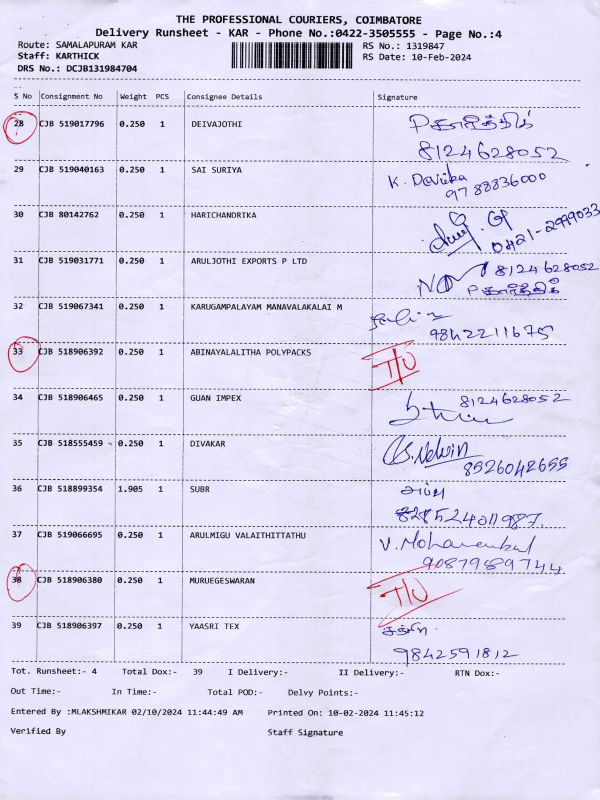 THE PROFESSIONAL COURIERS, COIMBATORE
Delivery Runsheet - KAR - Phone No.:0422-3505555 - Page No.:4
Route: SAMALAPURAM KAR RS No.: 1319847
Staff: KARTHICK RS Date: 10-Feb-2024
DRS No.: DCJB131984704
S No Consignment No Weight PCS Consignee Details Signature
28 CJB 519017796 0.250 1 DEIVAJOTHI
8124628052
29 CJB 519040163 0.250 1 SAI SURIYA K. Devika
9788836000
30 CJB 80142762 0.250 1 HARICHANDRIKA
0421-2999033
31 CJB 519031771 0.250 1 ARULJOTHI EXPORTS P LTD 8124628052
32 CJB 519067341 0.250 1 KARUGAMPALAYAM MANAVALAKALAI M
9842211675
33 CJB 518906392 0.250 1 ABINAYALALITHA POLYPACKS T/U
34 CJB 518906465 0.250 1 GUAN IMPEX 8124628052
35 CJB 518555459 0.250 1 DIVAKAR
8526042655
36 CJB 518899354 1.905 1 SUBR
37 CJB 519066695 0.250 1 ARULMIGU VALAITHITTATHU
9087989744
38 CJB 518906380 0.250 1 MURUEGESWARAN T/U
39 CJB 518906397 0.250 1 YAASRI TEX
9842591812
Tot. Runsheet:- 4 Total Dox:- 39 I Delivery:- II Delivery:- RTN Dox:-
Out Time:- In Time:- Total POD:- Delvy Points:-
Entered By :MLAKSHMIKAR 02/10/2024 11:44:49 AM Printed On: 10-02-2024 11:45:12
Verified By Staff Signature